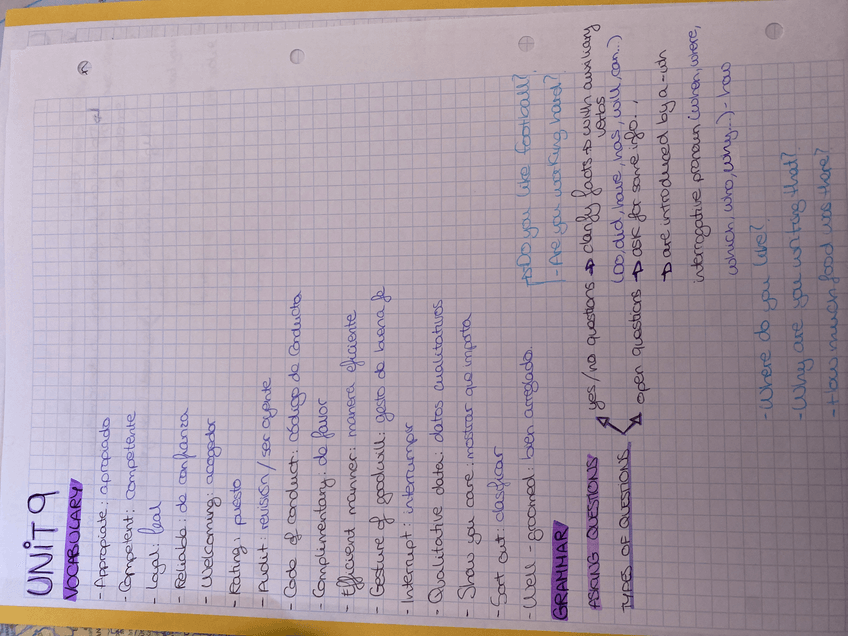 UNIT 9
VOCABULARY
- Appropiate: apropiado
- Competent: competente
- Loyal: leal
- Reliable: de confianza
- Welcoming: acogedor
- Rating: puesto
- Audit: revisión/ser oyente
- Code of conduct: código de conducta
- Complimentary: de favor
- Efficient manner: manera eficiente
- Gesture of goodwill: gesto de buena fe
- Interrupt: interrumpir
- Qualitative data: datos cualitativos
- Show you care: mostrar que importa
- Sort out: clasificar
- Well-groomed: bien arreglado.
GRAMMAR
→ Do you like football?
- Are you working hard?
ASKING QUESTIONS
TYPES OF QUESTIONS
yes/no questions → clarify facts → with auxiliary verbs
(do, did, have, has, will, can...)
open questions → ask for some info...,
→ are introduced by a -wh
interrogative pronoun (when, where,
which, who, why...) - how
- Where do you live?
- Why are you writing that?
- How much food was there?